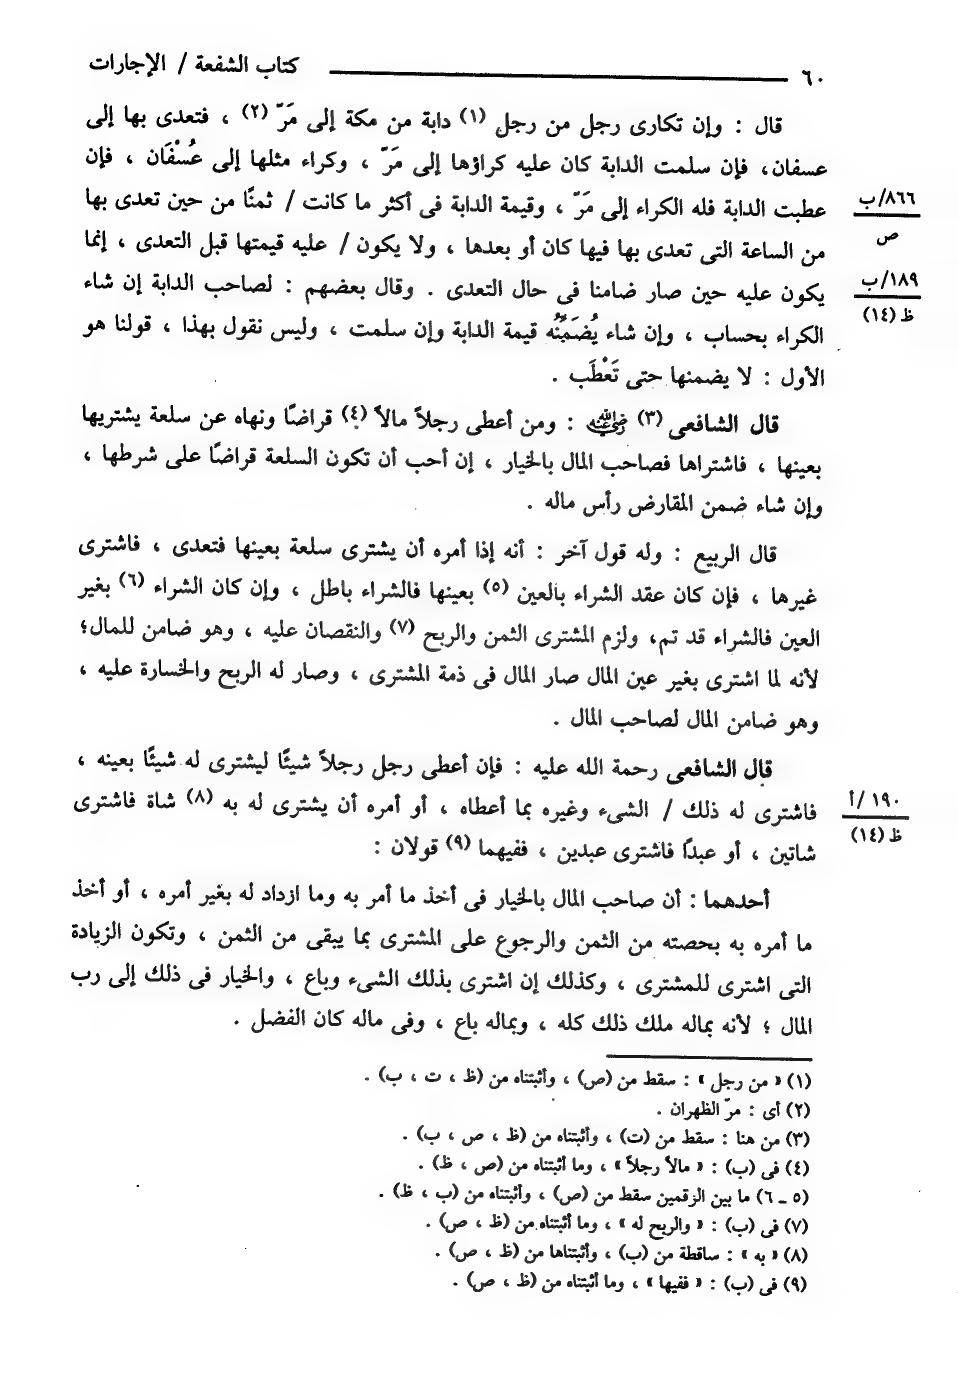 ٦٠ كتاب الشفعة / الإجارات
قال : وإن تكارى رجل من رجل (١) دابة من مكة إلى مَرّ (٢) ، فتعدى بها إلى
عسفان، فإن سلمت الدابة كان عليه كراؤها إلى مَرّ ، وكراء مثلها إلى عُسْفَان ، فإن
عطبت الدابة فله الكراء إلى مَرّ ، وقيمة الدابة فى أكثر ما كانت / ثمنًا من حين تعدى بها
٨٦٦/ب
ص
من الساعة التى تعدى بها فيها كان أو بعدها ، ولا يكون / عليه قيمتها قبل التعدى ، إنما
١٨٩/ب
ظ (١٤)
يكون عليه حين صار ضامنا فى حال التعدى . وقال بعضهم : لصاحب الدابة إن شاء
الكراء بحساب ، وإن شاء يُضَمِّنُه قيمة الدابة وإن سلمت ، وليس نقول بهذا ، قولنا هو
الأول : لا يضمنها حتى تَعْطَب .
قال الشافعى (٣) رضي الله عنه : ومن أعطى رجلاً مالاً (٤) قراضًا ونهاه عن سلعة يشتريها
بعينها ، فاشتراها فصاحب المال بالخيار ، إن أحب أن تكون السلعة قراضًا على شرطها ،
وإن شاء ضمن المقارض رأس ماله .
قال الربيع : وله قول آخر : أنه إذا أمره أن يشترى سلعة بعينها فتعدى ، فاشترى
غيرها ، فإن كان عقد الشراء بالعين (٥) بعينها فالشراء باطل ، وإن كان الشراء (٦) بغير
العين فالشراء قد تم، ولزم المشترى الثمن والربح (٧) والنقصان عليه ، وهو ضامن للمال؛
لأنه لما اشترى بغير عين المال صار المال فى ذمة المشترى ، وصار له الربح والخسارة عليه ،
وهو ضامن المال لصاحب المال .
قال الشافعى رحمة الله عليه : فإن أعطى رجل رجلاً شيئًا ليشترى له شيئًا بعينه ،
فاشترى له ذلك / الشىء وغيره بما أعطاه ، أو أمره أن يشترى له به (٨) شاة فاشترى
١٩٠/أ
ظ (١٤)
شاتين ، أو عبدًا فاشترى عبدين ، ففيهما (٩) قولان :
أحدهما : أن صاحب المال بالخيار فى أخذ ما أمر به وما ازداد له بغير أمره ، أو أخذ
ما أمره به بحصته من الثمن والرجوع على المشترى بما يبقى من الثمن ، وتكون الزيادة
التى اشترى للمشترى ، وكذلك إن اشترى بذلك الشىء وباع ، والخيار فى ذلك إلى رب
المال ؛ لأنه بماله ملك ذلك كله ، وبماله باع ، وفى ماله كان الفضل .
(١) « من رجل » : سقط من (ص) ، وأثبتناه من (ظ ، ت ، ب) .
(٢) أى : مرّ الظهران .
(٣) من هنا : سقط من (ت) ، وأثبتناه من (ظ ، ص ، ب) .
(٤) فى (ب) : « مالاً رجلاً » ، وما أثبتناه من (ص ، ظ) .
(٥ ــ ٦) ما بين الرقمين سقط من (ص) ، وأثبتناه من (ب ، ظ) .
(٧) فى (ب) : « والربح له » ، وما أثبتناه من (ظ ، ص) .
(٨) « به » : ساقطة من (ب) ، وأثبتناها من (ظ ، ص) .
(٩) فى (ب) : « ففيها » ، وما أثبتناه من (ظ ، ص) .